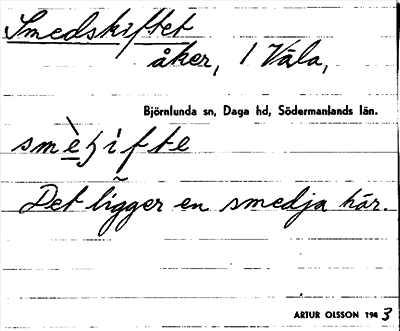 Smedskiftet
åker, 1 Väla,
Björnlunda sn, Daga hd, Södermanlands län.
Det ligger en smedja här.
ARTUR OLSSON 1983